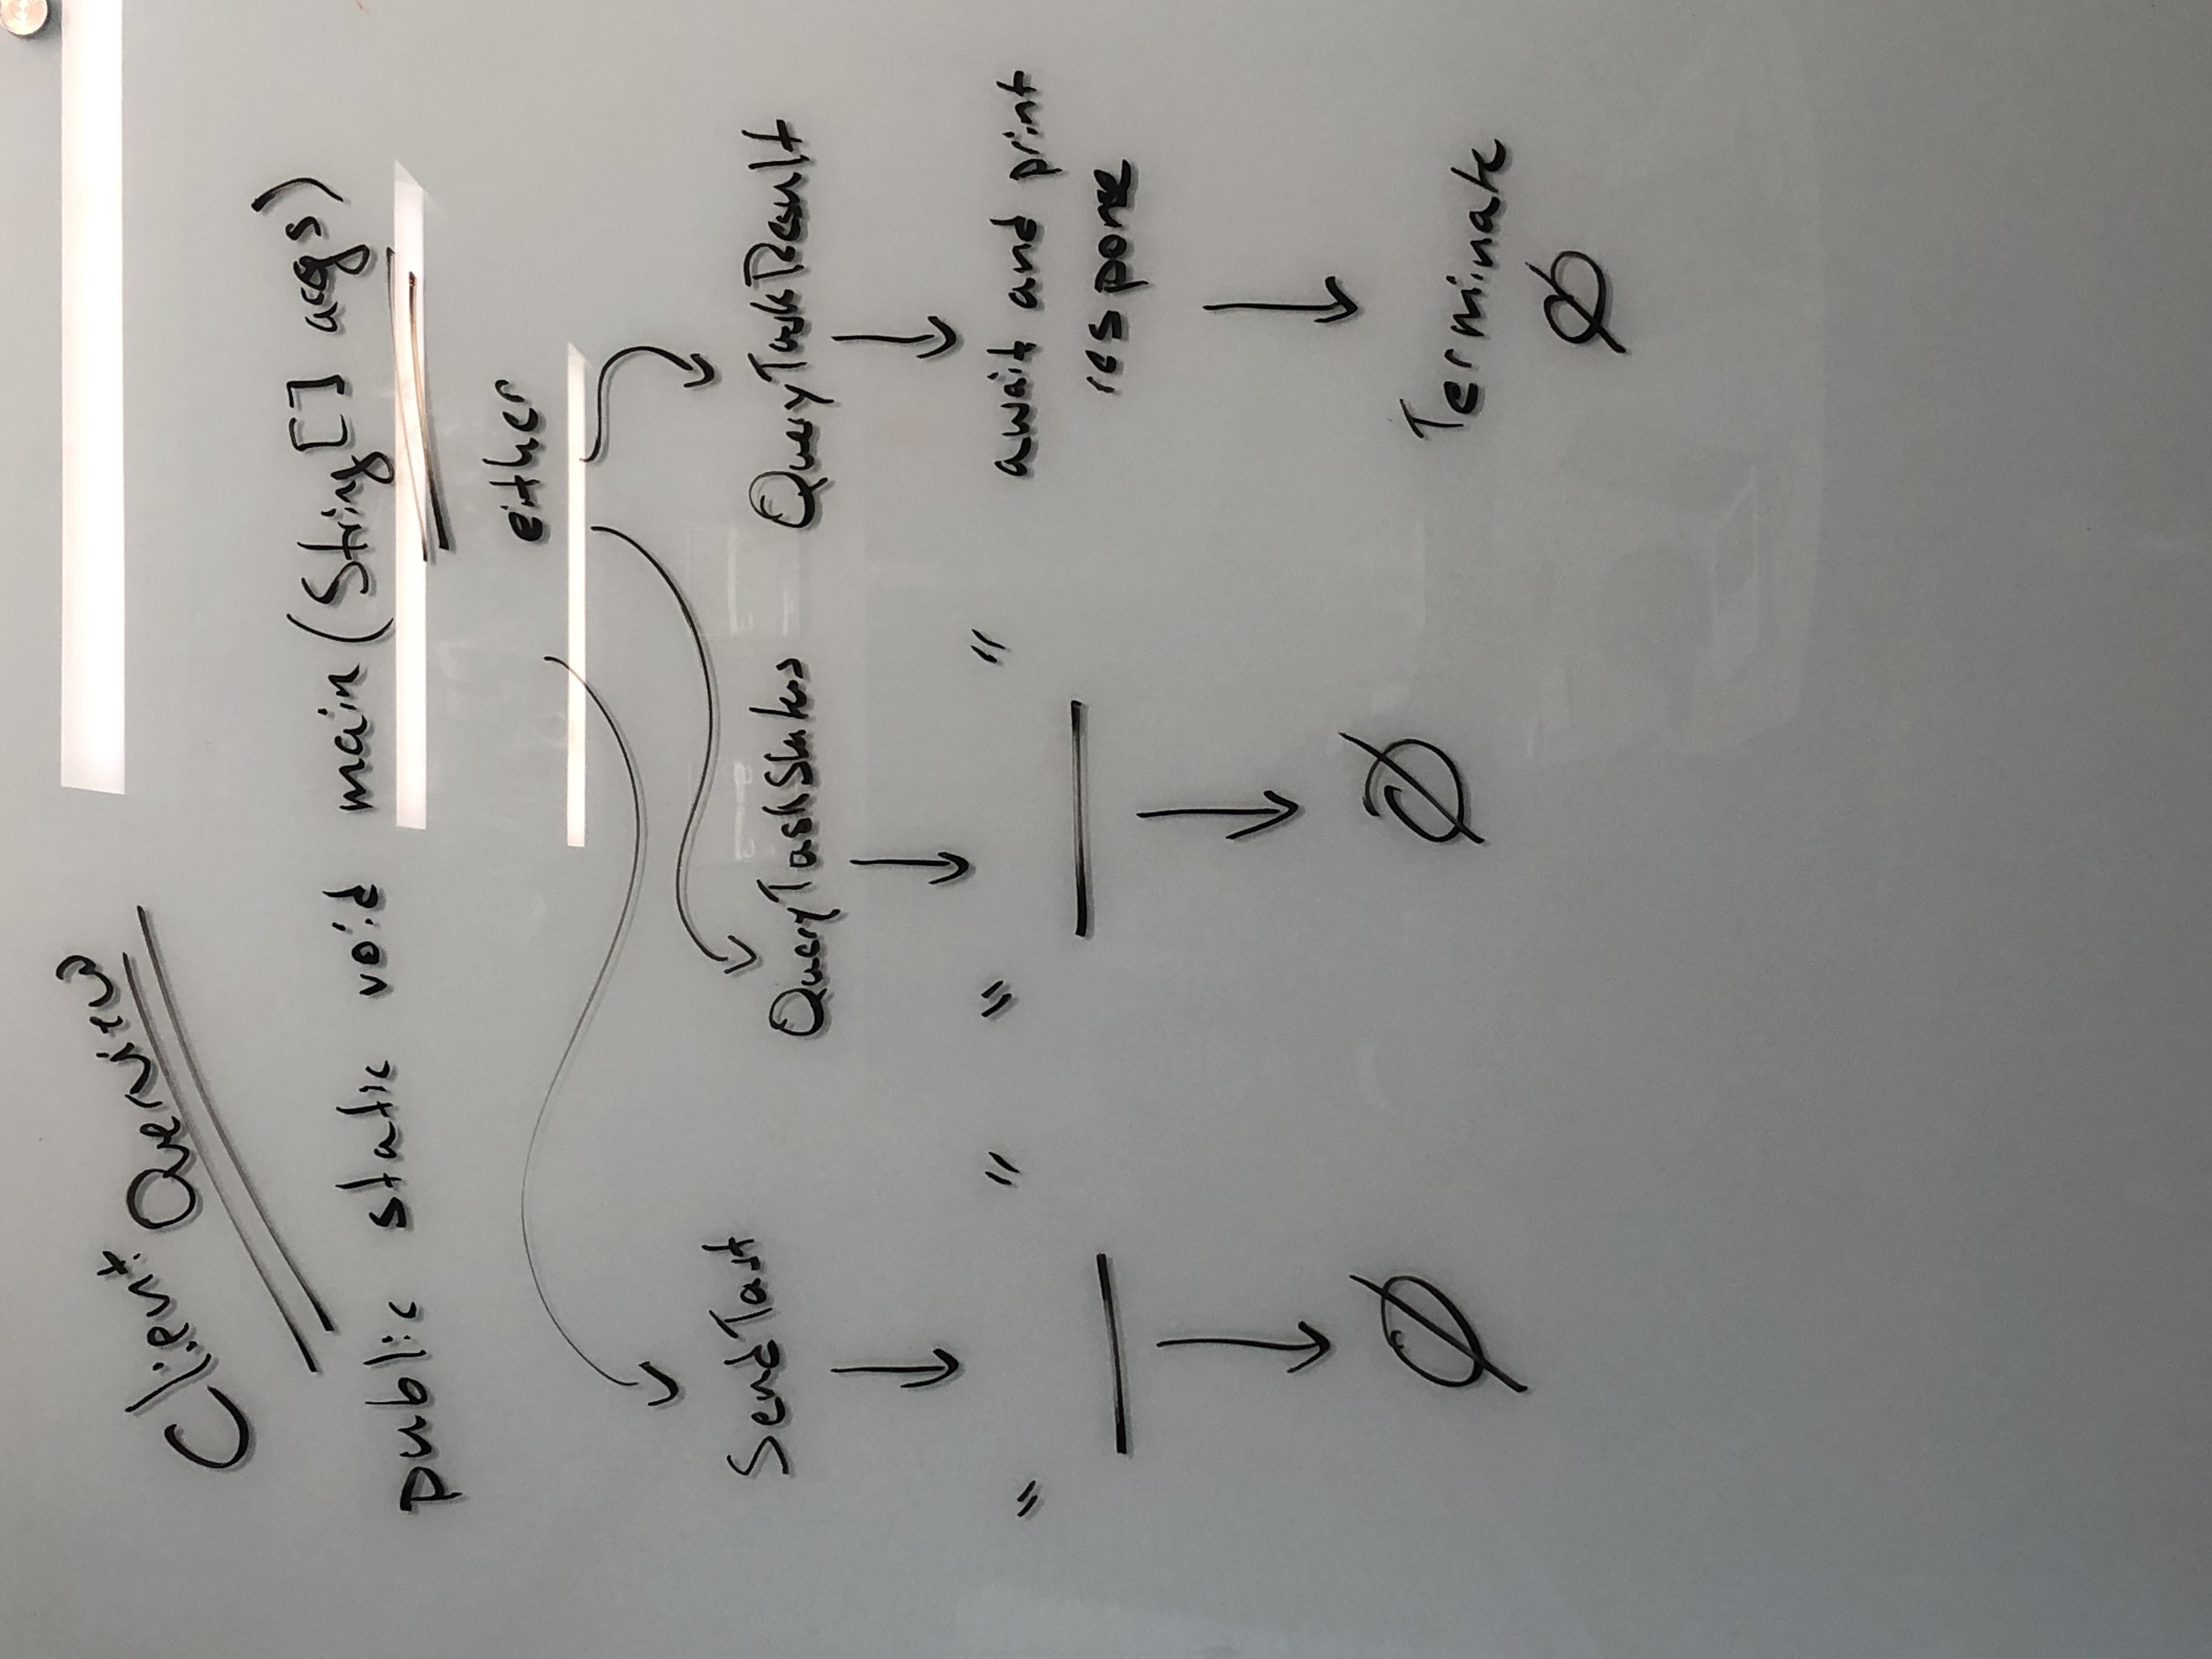 Client Overview
public static void main (String[] args)
either
SendTast QueryTaskStatus QueryTaskResult
" __ " " __ " await and print
response
Ø Ø Terminate
Ø